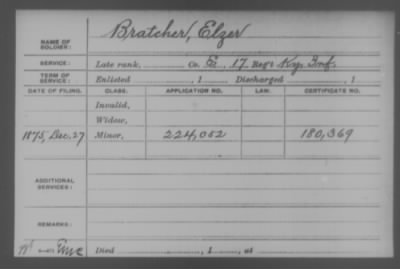 NAME OF SOLDIER: Bratcher, Elzer
SERVICE: Late rank, Co. E, 17 Reg't Ky. Inf.
TERM OF SERVICE: Enlisted , 1 Discharged , 1
DATE OF FILING. CLASS. APPLICATION NO. LAW. CERTIFICATE NO.
Invalid,
Widow,
1875, Dec. 27 Minor, 224,052 180,369
ADDITIONAL SERVICES:
REMARKS:
Died , 1 , at